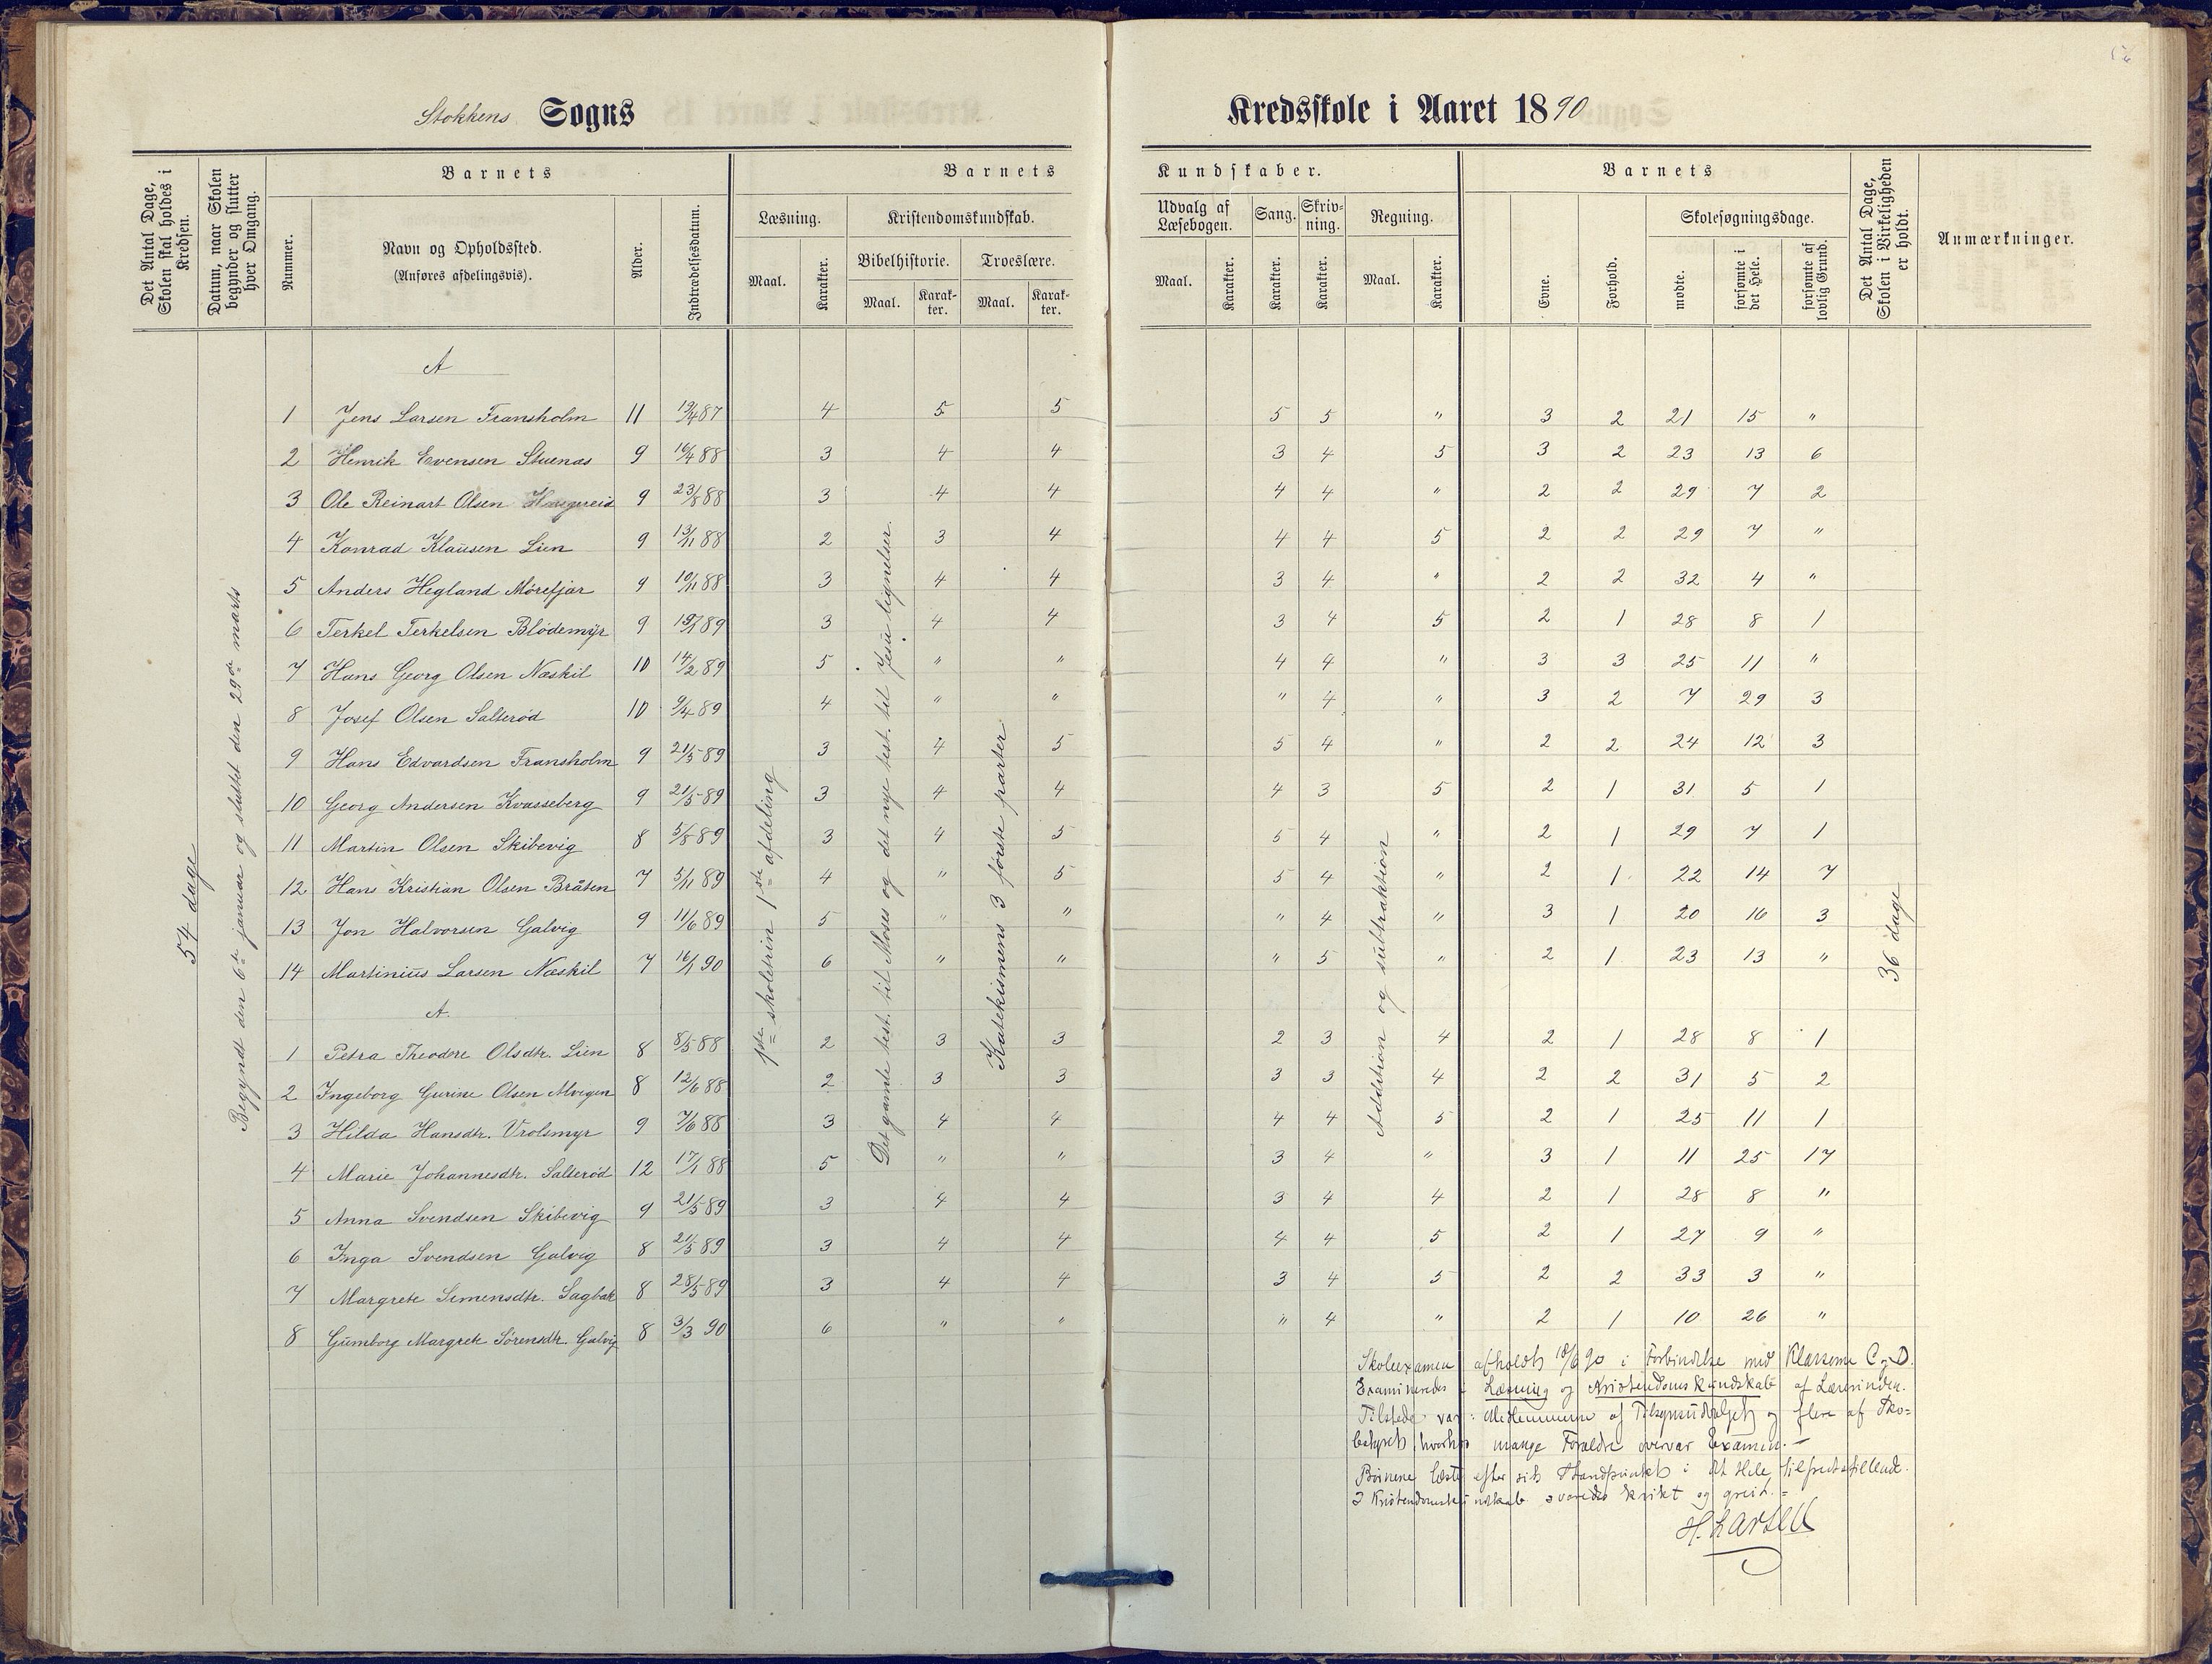 Stokkens Sogns Kredsskole i Aaret 1890
Det Antal Dage, Skolen skal holdes i Kredsen.
Datum, naar Skolen begynder og slutter hver Omgang.
Barnets
Nummer.
Navn og Opholdssted.
(Anføres afdelingsvis).
Alder.
Indtrædelsesdatum.
Barnets Kundskaber.
Læsning.
Maal. Karakter.
Kristendomskundskab.
Bibelhistorie. Troeslære.
Maal. Karakter. Maal. Karakter.
Udvalg af Læsebogen.
Maal. Karakter.
Sang. Karakter.
Skrivning. Karakter.
Regning.
Maal. Karakter.
Barnets
Evne. Forhold.
Skolesøgningsdage.
mødte. forsømte i det Hele. forsømte af lovlig Grund.
Det Antal Dage, Skolen i Virkeligheden er holdt.
Anmærkninger.
54 dage
Begyndt den 6te januar og sluttet den 29de marts
1ste skoletrin 1ste afdeling
Det gamle test. til Moses og det nye test. til Jesu lignelser.
Katekismens 3 første parter
Addition og subtraktion
36 dage
A
1 Jens Larsen Fransholm 11 19/4 87 4 5 5 5 5 " 3 2 21 15 "
2 Henrik Evensen Stuenæs 9 16/4 88 3 4 4 3 4 5 3 2 23 13 6
3 Ole Reinart Olsen 9 23/8 88 3 4 4 4 4 " 2 2 29 7 2
4 Konrad Klausen Lien 9 13/11 88 2 3 4 4 4 5 2 2 29 7 "
5 Anders Hegland Mørefjær 9 10/11 88 3 4 4 3 4 " 2 2 32 4 "
6 Terkel Terkelsen Blødemyr 9 89 3 4 4 3 4 5 2 1 28 8 1
7 Hans Georg Olsen Næskil 10 14/2 89 5 " " 4 4 " 3 3 25 11 "
8 Josef Olsen Salterød 10 9/4 89 4 " " " 4 " 3 2 7 29 3
9 Hans Edvardsen Fransholm 9 21/5 89 3 4 5 5 4 " 2 2 24 12 3
10 Georg Andersen Kvasseberg 9 21/5 89 3 4 4 4 3 5 2 1 31 5 1
11 Martin Olsen Skibevig 8 5/8 89 3 4 5 5 4 " 2 1 29 7 1
12 Hans Kristian Olsen Bråten 7 5/11 89 4 " 5 5 4 " 2 1 22 14 7
13 Jon Halvorsen Galvig 9 11/6 89 5 " " " 4 " 3 1 20 16 3
14 Martinius Larsen Næskil 7 16/1 90 6 " " " 5 " 2 1 23 13 "
A.
1 Petra Theodore Olsdtr. Lien 8 8/5 88 2 3 3 2 3 4 2 1 28 8 1
2 Ingeborg Gurine Olsen Alvegen 8 12/6 88 2 3 3 3 3 4 2 2 31 5 2
3 Hilda Hansdtr. Vrolsmyr 9 7/6 88 3 4 4 4 4 5 2 1 25 11 1
4 Marie Johannesdtr. Salterød 12 17/1 88 5 " " 3 4 " 3 1 11 25 17
5 Anna Svendsen Skibevig 9 21/5 89 3 4 4 3 4 4 2 1 28 8 "
6 Inga Svendsen Galvig 8 21/5 89 3 4 4 4 4 5 2 1 27 9 "
7 Margrete Simensdtr. Sagbak 8 28/5 89 3 4 4 3 4 5 2 2 33 3 "
8 Gumborg Margrete Sørensdtr. Galvig 8 3/3 90 6 " " " 4 " 2 1 10 26 "
Skoleexamen afholdt 18/6 90 i Forbindelse med Klasserne C og D.
Examineredes i Læsning og Kristendomskundskab af Lærerinden.
Tilstede var: Medlemmerne af Tilsynsudvalget og flere af Sko-
bestyret, hvorhos mange Forældre overvar Examen.
Børnene læste efter sit Standpunkt i det Hele tilfredsstillende.
I Kristendomskundskab svaredes kvikt og greit.
H. Larsen